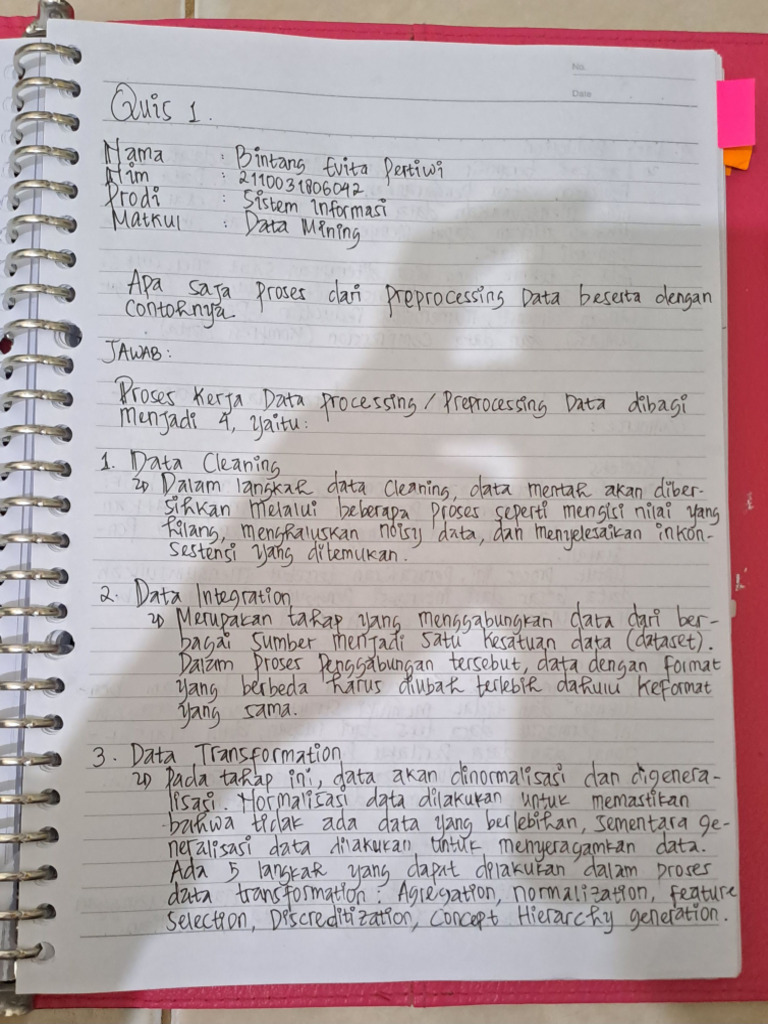 No.
Date
Quis 1.
Nama : Bintang Evita Pertiwi
Nim : 2110031806042
Prodi : Sistem Informasi
Matkul : Data Mining
Apa saja proses dari preprocessing Data beserta dengan
contohnya.
JAWAB:
Proses Kerja Data processing / Preprocessing Data dibagi
menjadi 4, yaitu:
1. Data Cleaning
Dalam langkah data cleaning, data mentah akan diber-
sihkan melalui beberapa proses seperti mengisi nilai yang
hilang, menghaluskan noisy data, dan menyelesaikan inkon-
sestensi yang ditemukan.
2. Data Integration
Merupakan tahap yang menggabungkan data dari ber-
bagai sumber menjadi satu kesatuan data (dataset).
Dalam proses Penggabungan tersebut, data dengan format
yang berbeda harus diubah terlebih dahulu keformat
yang sama.
3. Data Transformation
Pada tahap ini, data akan dinormalisasi dan digenera-
lisasi. Normalisasi data dilakukan untuk memastikan
bahwa tidak ada data yang berlebihan, sementara ge-
neralisasi data dilakukan untuk menyeragamkan data.
Ada 5 langkah yang dapat dilakukan dalam proses
data transformation: Agregation, normalization, feature
selection, Discreditization, Concept Hierarchy generation.